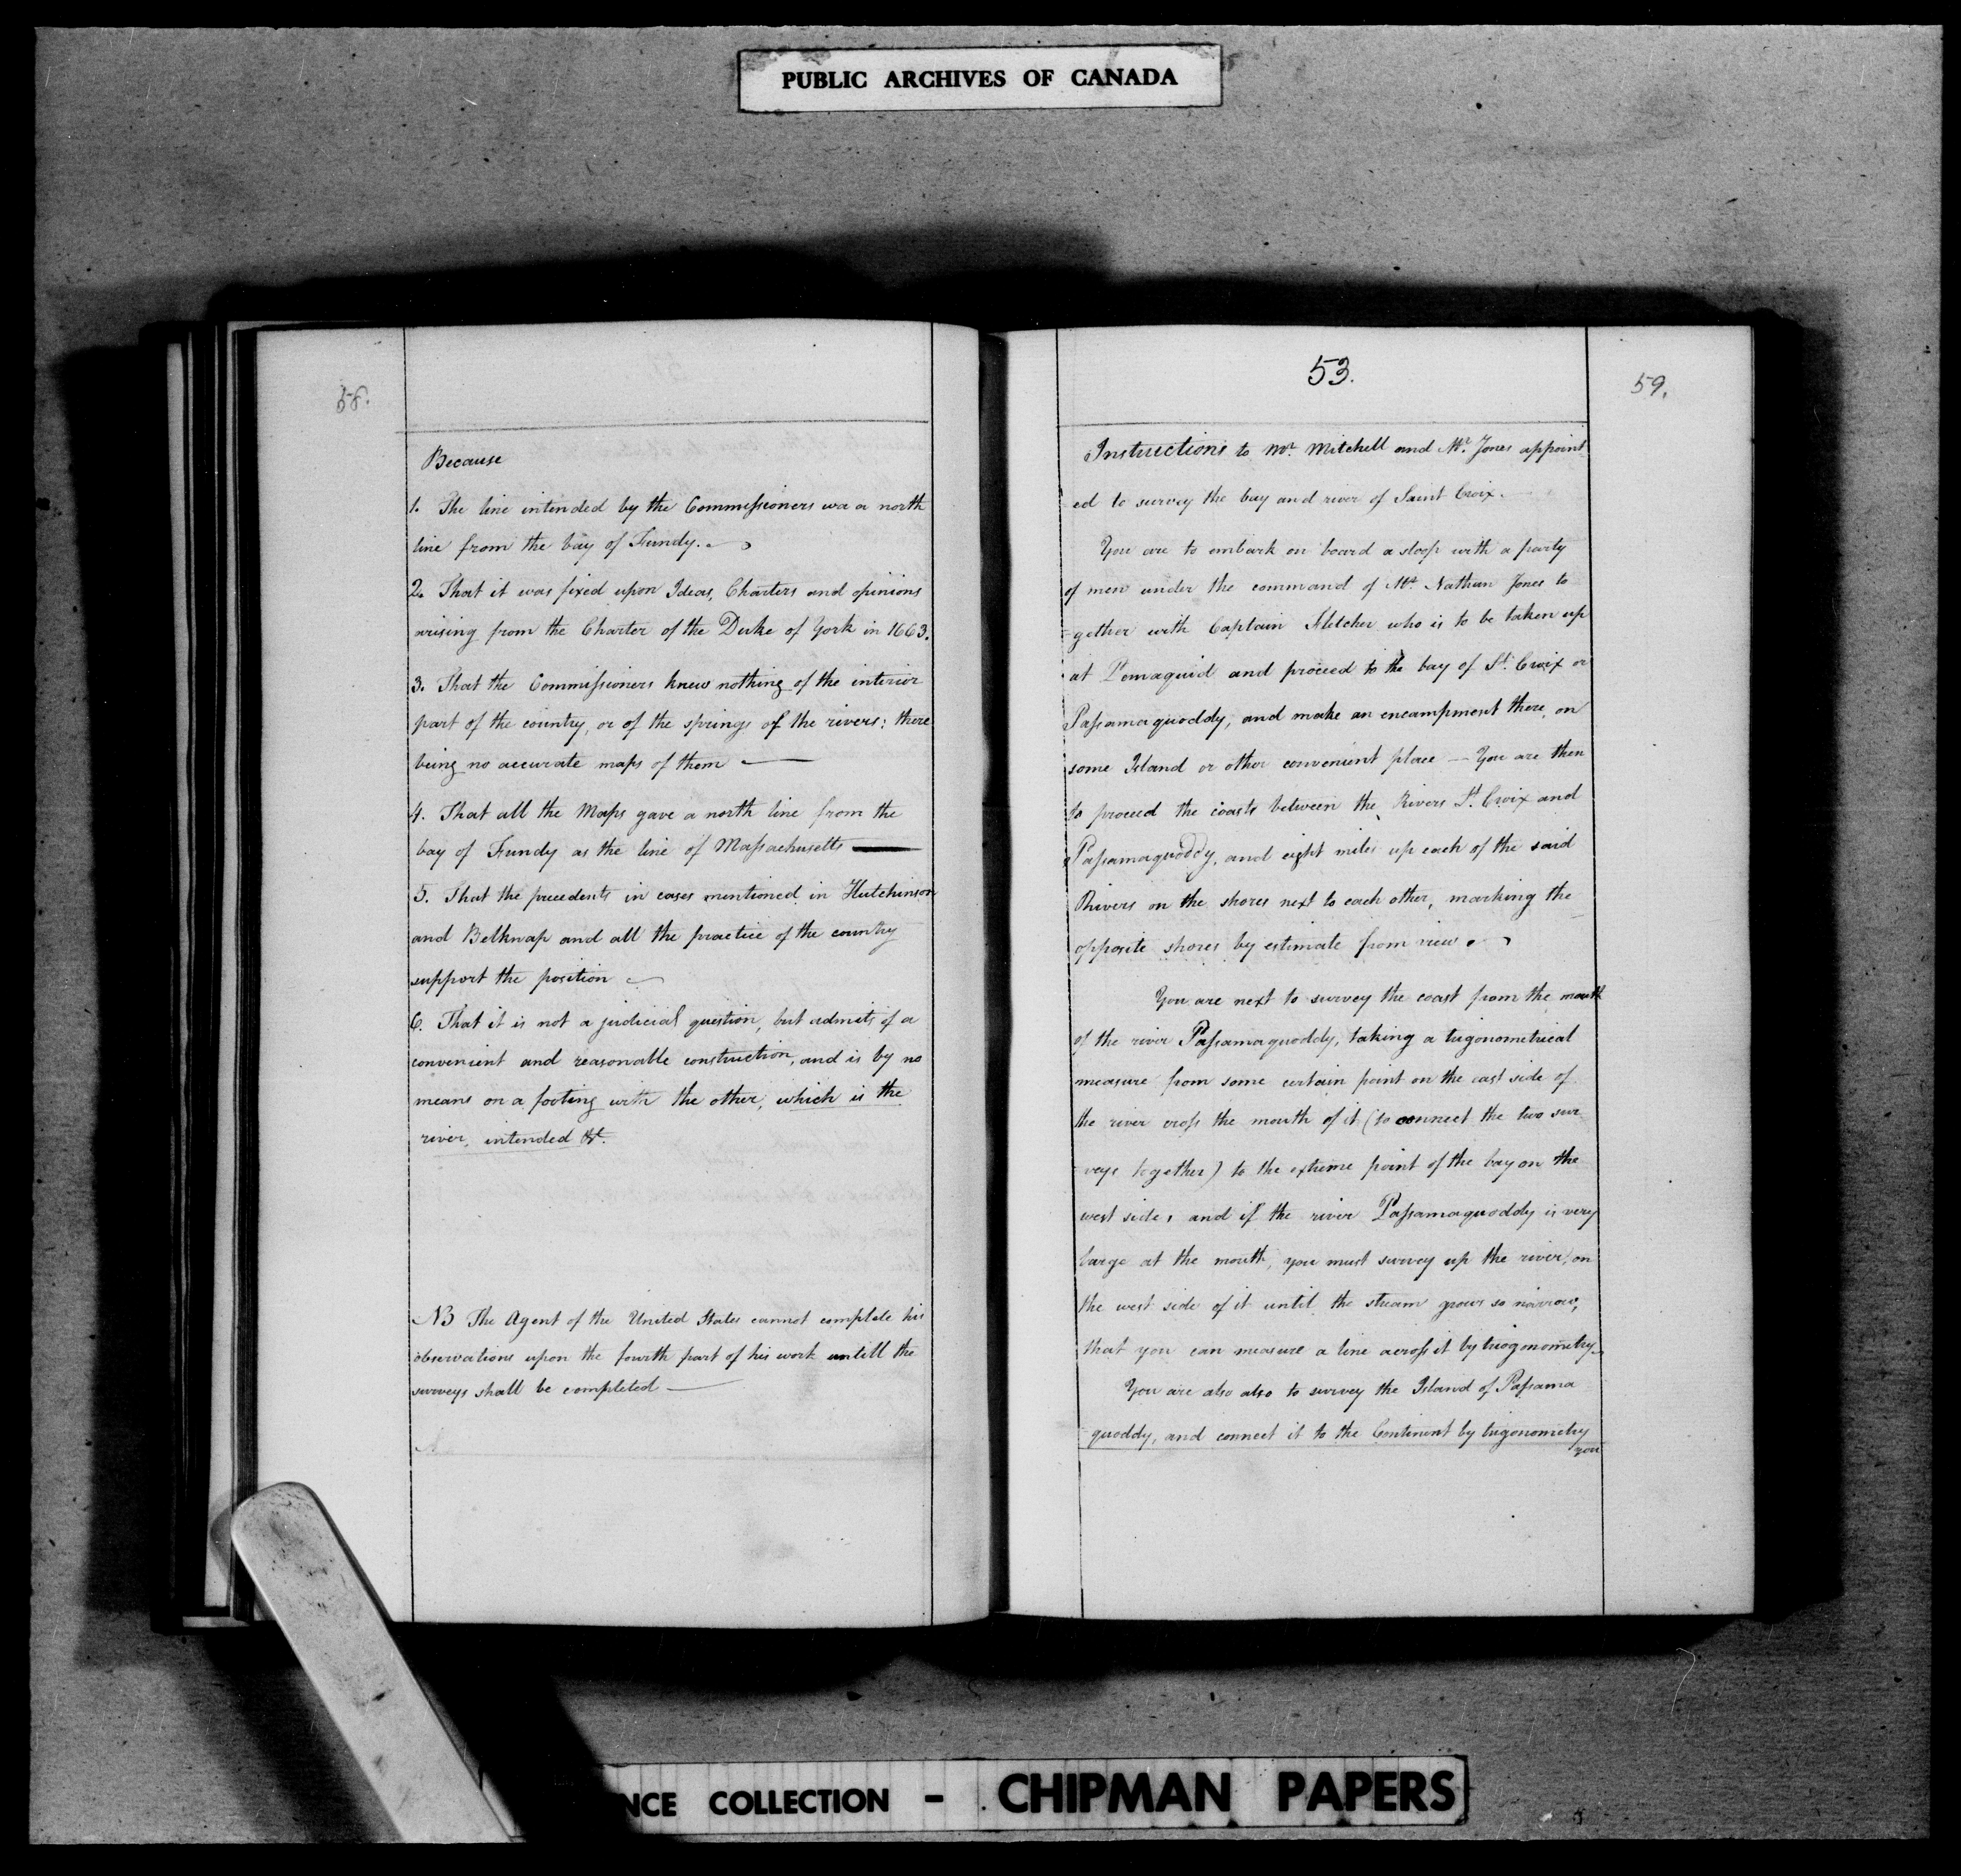 PUBLIC ARCHIVES OF CANADA
58.
Because
1. The line intended by the Commissioners wa a north
line from the bay of Fundy.
2. That it was fixed upon Ideas, Charters and opinions
arising from the Charter of the Duke of York in 1663.
3. That the Commissioners knew nothing of the interior
part of the country, or of the springs of the rivers: there
being no accurate maps of them —
4. That all the Maps gave a north line from the
bay of Fundy as the line of Massachusetts —
5. That the precedents in cases mentioned in Hutchinson
and Belknap and all the practice of the country
support the position
6. That it is not a judicial question, but admits of a
convenient and reasonable construction, and is by no
means on a footing with the other, which is the
river, intended &c.
NB The Agent of the United States cannot complete his
observations upon the fourth part of his work untill the
surveys shall be completed —
53.
59.
Instructions to Mr. Mitchell and Mr. Jones appoint
ed to survey the bay and river of Saint Croix.
You are to embark on board a sloop with a party
of men under the command of Mr. Nathan Jones to
-gether with Captain Fletcher who is to be taken up
at Pemaquid and proceed to the bay of St. Croix or
Passamaquoddy, and make an encampment there, on
some Island or other convenient place — You are then
to proceed the coasts between the Rivers St. Croix and
Passamaquoddy, and eight miles up each of the said
Rivers on the shores next to each other, marking the
opposite shores by estimate from view.
You are next to survey the coast from the mouth
of the river Passamaquoddy, taking a trigonometrical
measure from some certain point on the east side of
the river cross the mouth of it (to connect the two sur
-veys together) to the extreme point of the bay on the
west side, and if the river Passamaquoddy is very
large at the mouth, you must survey up the river, on
the west side of it until the stream grows so narrow,
that you can measure a line across it by triogonometry.
You are also also to survey the Island of Passama
quoddy, and connect it to the Continent by trigonometry
you
NCE COLLECTION - CHIPMAN PAPERS